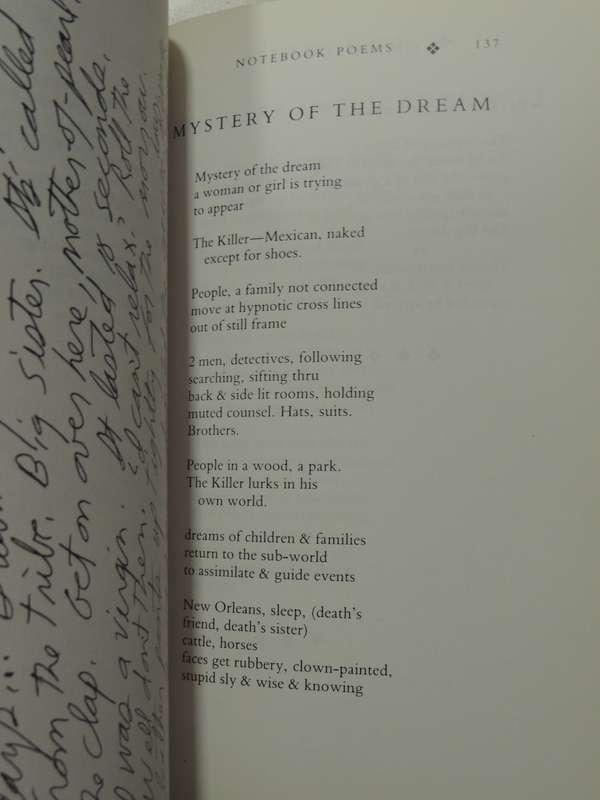 NOTEBOOK POEMS ❖ 137
MYSTERY OF THE DREAM
Mystery of the dream
a woman or girl is trying
to appear
The Killer—Mexican, naked
except for shoes.
People, a family not connected
move at hypnotic cross lines
out of still frame
2 men, detectives, following
searching, sifting thru
back & side lit rooms, holding
muted counsel. Hats, suits.
Brothers.
People in a wood, a park.
The Killer lurks in his
own world.
dreams of children & families
return to the sub-world
to assimilate & guide events
New Orleans, sleep, (death's
friend, death's sister)
cattle, horses
faces get rubbery, clown-painted,
stupid sly & wise & knowing
from the tribe. Big Sister. called
the clap. Get on over here, mother-of-pearl.
I was a virgin. It lasted 18 seconds.
Well don't then. I can't relax. Roll the